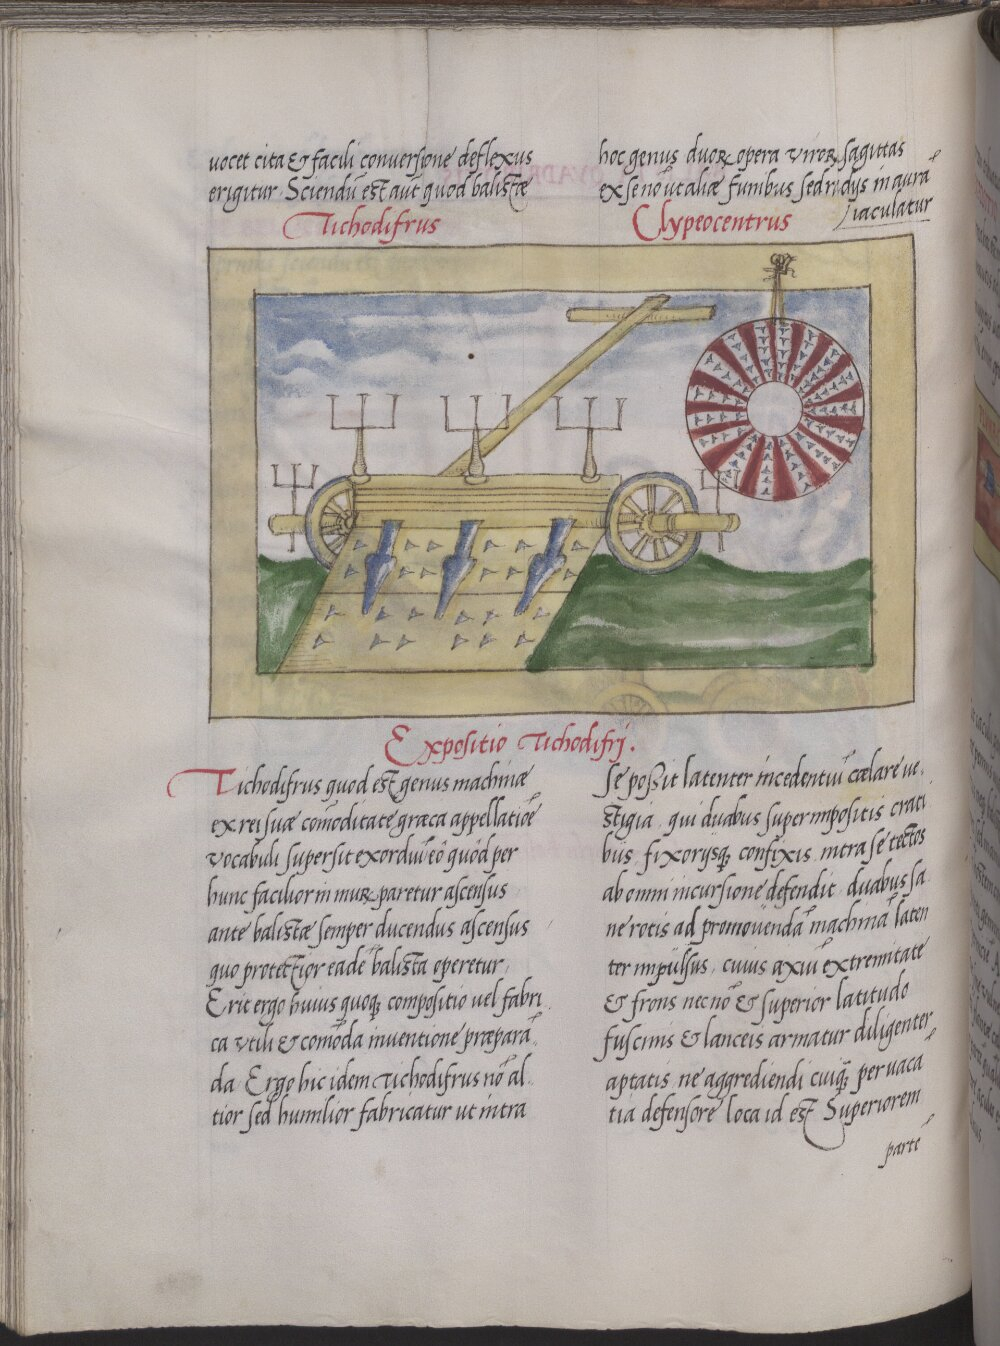 uocet cita & facili conuersione deflexus
erigitur. Sciendũ est aut̃ quod balistæ
hoc genus duoꝝ opera viroꝝ sagittas
ex se nõ ut aliæ funibus sed radijs in aura
iaculatur
Tichodifrus
Clypeocentrus
Expositio Tichodifrj.
Tichodifrus quod est genus machinæ
ex rei suæ com̃oditate græca appellatiõe
vocabuli supersit exordiũ eõ quòd per
hunc facilior in muꝝ paretur ascensus
ante balistæ semper ducendus ascensus
quo protectior eadẽ balista operetur,
Erit ergo huius quoqꝫ compositio uel fabri
ca vtili & com̃oda inuentione præparã
da Ergo hic idem tichodifrus nõ al
tior sed humilior fabricatur ut intra
se possit latenter incedentiũ cælare ue
stigia, qui duabus superimpositis crati
bus fixorijsqꝫ confixis, intra se tectos
ab omni incursione defendit, duabus sa
ne rotis ad promouendã machinã laten
ter impulsus, cuius axiũ extremitate
& frons necnõ & superior latitudo
fuscinis & lanceis armatur diligenter
aptatis, ne aggrediendi cuiqꝫ per uaca
tia defensorẽ loca id est Superiorem
partẽ